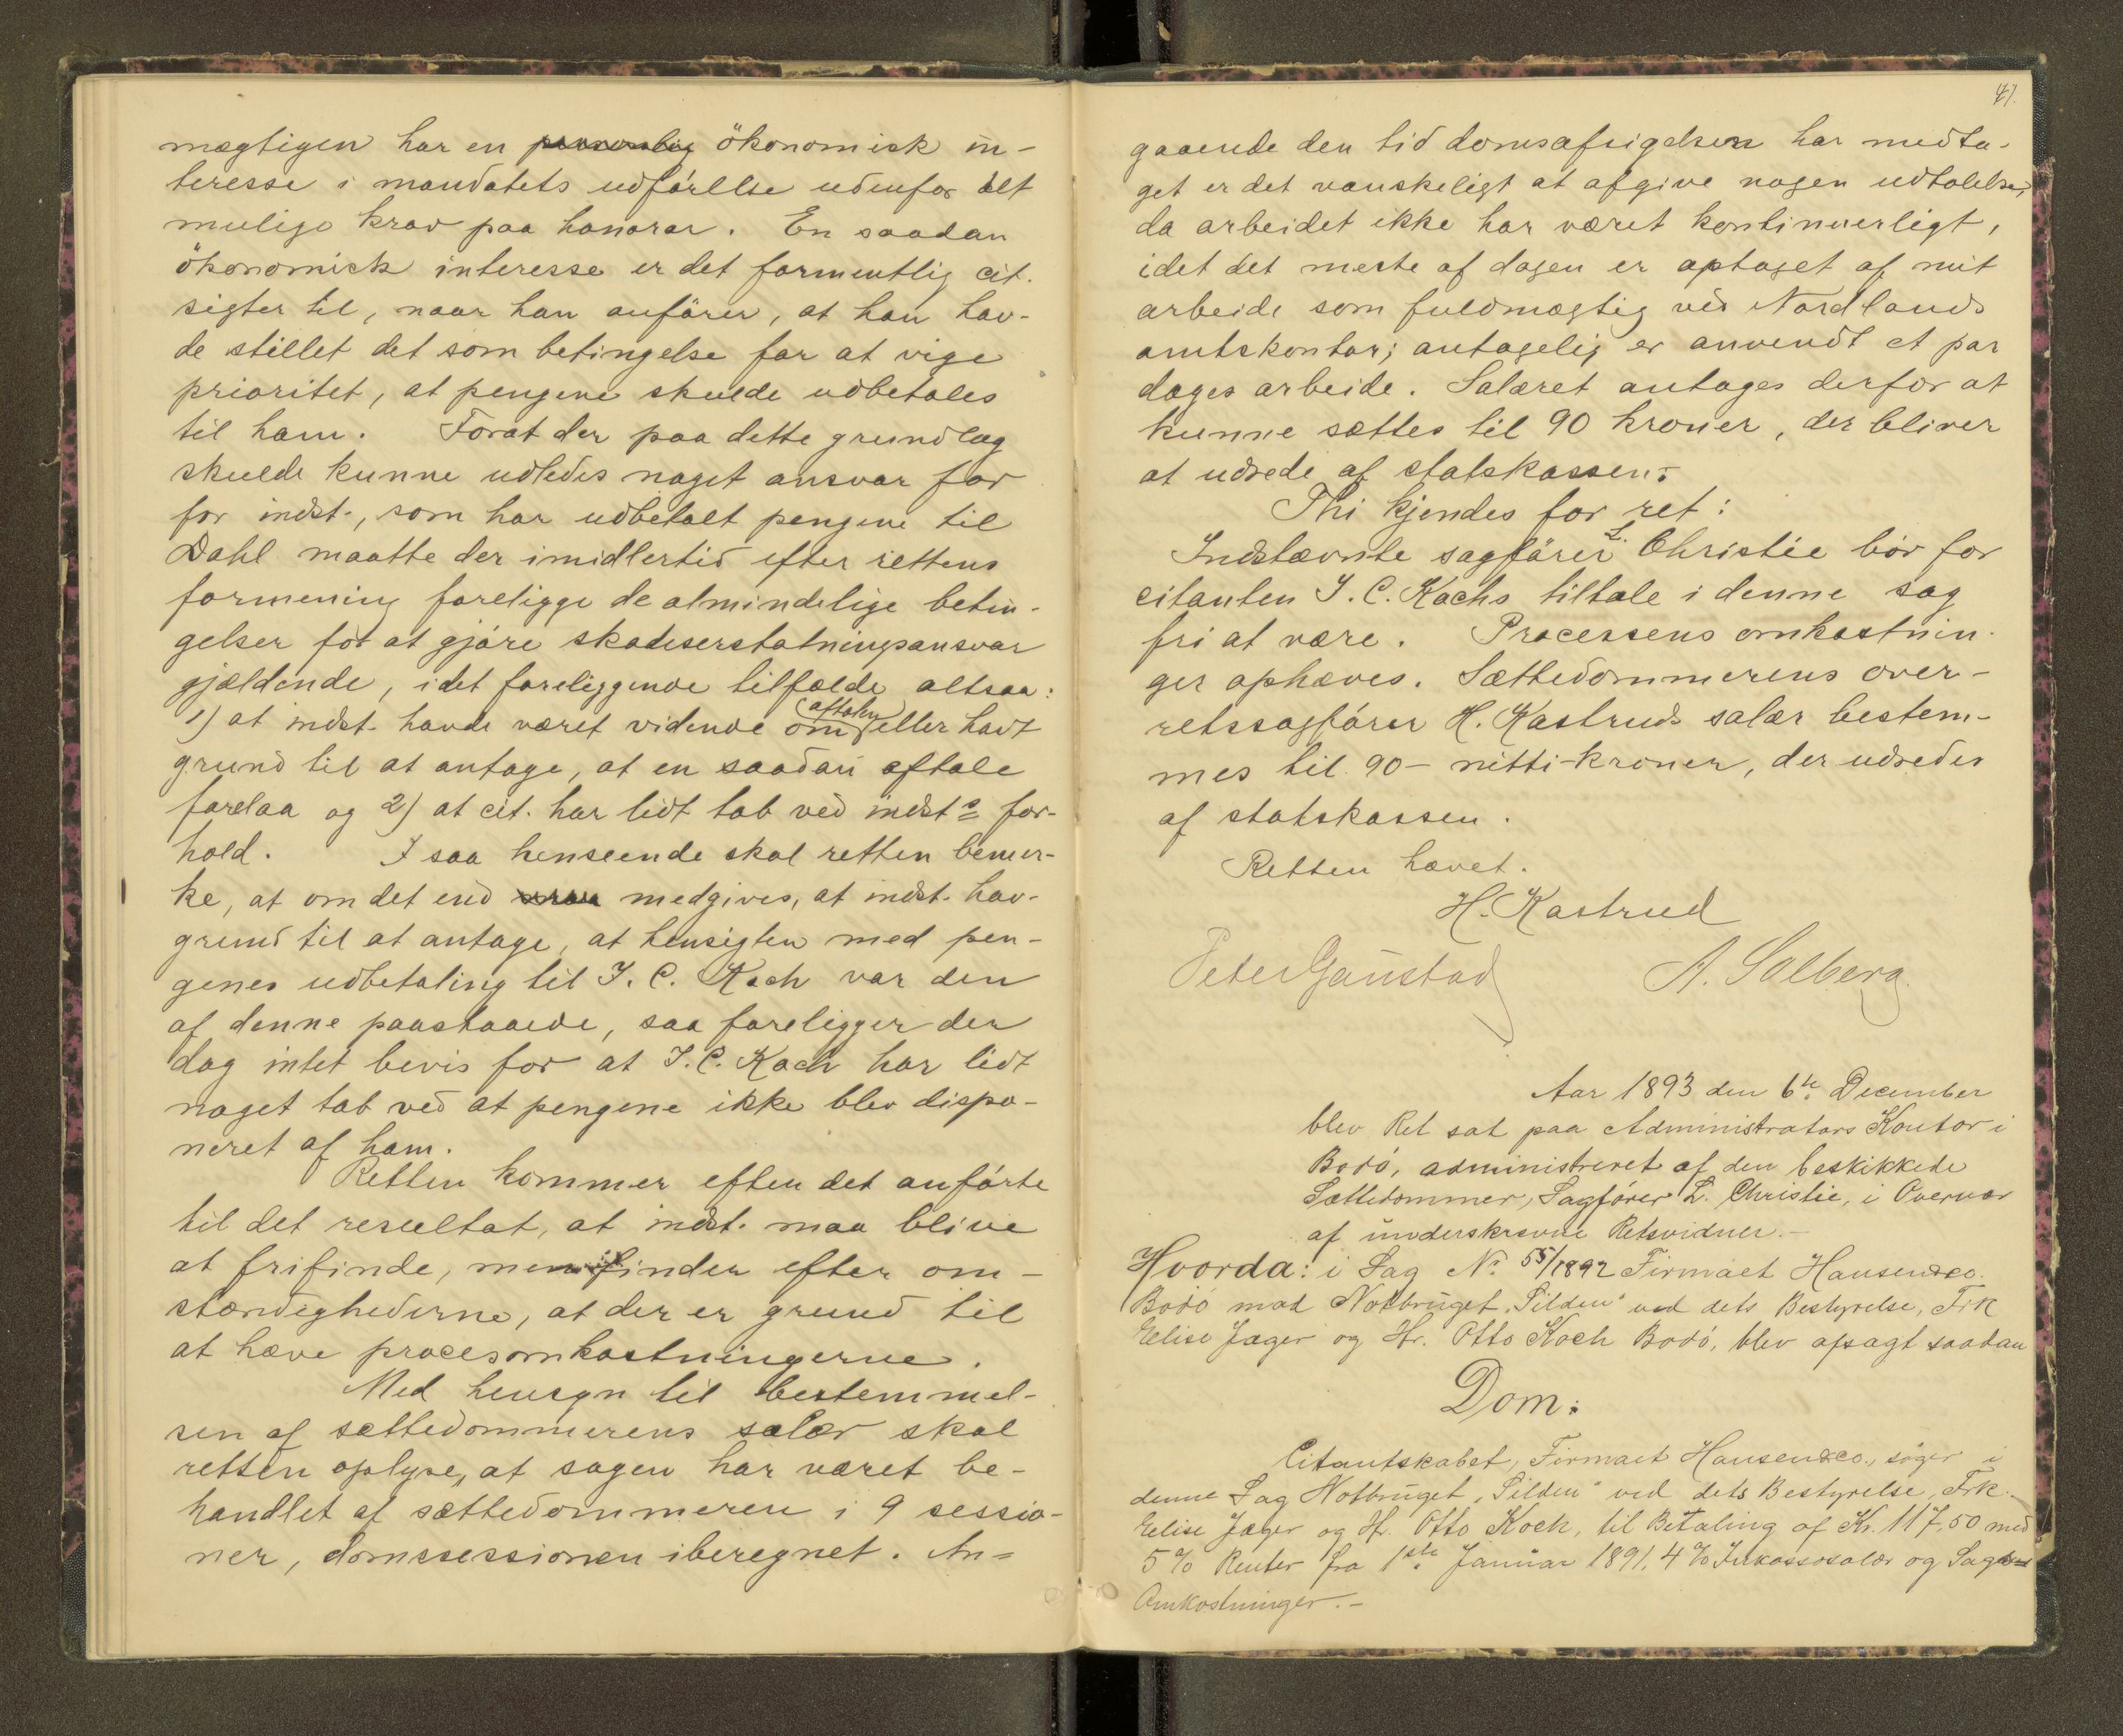 mægtigen har en økonomisk in-
teresse i mandatets udförllse udenfor det
mulige krav paa honorar. En saadan
ökonomisk interesse er det formentlig cit.
sigter til, naar han anförer, at han hav-
de stillet det som betingelse for at vige
prioritet, at pengene skulde udbetales
til ham. Forat der paa dette grundlag
skulde kunne udledes noget ansvar for
for indst., som har udbetalt pengene til
Dahl maatte der imidlertid efter rettens
formening foreligge de almindelige betin-
gelser for at gjöre skadeserstatningsansvar
gjældende, i det foreliggende tilfælde altsaa:
1) at indst. havde været vidende om aftalen eller havt
grund til at antage, at en saadan aftale
forelaa og 2) at cit. har lidt tab ved indsts for-
hold. I saa henseende skal retten bemer-
ke, at om det end medgives, at indst. hav-
grund til at antage, at hensigten med pen-
genes udbetaling til J. C. Koch var den
af denne paastaaede, saa foreligger der
dog intet bevis for at J. C. Koch har lidt
noget tab ved at pengene ikke blev dispo-
neret af ham.
Retten kommer efter det anförte
til det resultat, at indst. maa blive
at frifinde, men finder efter om-
stændighederne, at der er grund til
at hæve procesomkostningerne.
Med hensyn til bestemmel-
sen af sættedommerens salær skal
retten oplyse, at sagen har været be-
handlet af sættedommeren i 9 sessio-
ner, domssessionen iberegnet. An-
47.
gaaende den tid domsafsigelsen har medta-
get er det vanskeligt at afgive nogen udtalelse,
da arbeidet ikke har været kontinuerligt,
idet det meste af dagen er optaget af mit
arbeide som fuldmægtig ved Nordlands
amtskontor; antagelig er anvendt et par
dages arbeide. Salæret antages derfor at
kunne sættes til 90 kroner, der bliver
at udrede af statskassen.
Thi kjendes for ret:
Indstævnte sagförer L. Christie bör for
citanten J. C. Kochs tiltale i denne sag
fri at være. Processens omkostnin-
ger ophæves. Sættedommerens over-
retssagförer H. Kastruds salær bestem-
mes til 90 – nitti-kroner, der udredes
af statskassen.
Retten hævet.
H. Kastrud
Peter Gaustad A. Solberg.
Aar 1893 den 6te December
blev Ret sat paa Administrators Kontor i
Bodó, administreret af den beskikkede
Sættedommer, Sagfórer L. Christie, i Overvær
af underskrevne Retsvidner. –
Hvorda: i Sag No. 55/1892 Firmaet Hansen & co.
Bodó mod Notbruget "Silden" ved dets Bestyrelse, Frk
Elise Jæger og Hr. Otto Koch Bodó, blev afsagt saadan
Dom:
Citantskabet, Firmaet Hansen & co., söger i
denne Sag Notbruget "Silden" ved dets Bestyrelse, Frk.
Elise Jæger og Hr. Otto Koch, til Betaling af Kr. 117,50 med
5 % Renter fra 1ste Januar 1891, 4 % Inkassosalær og Sagens
Omkostninger. –